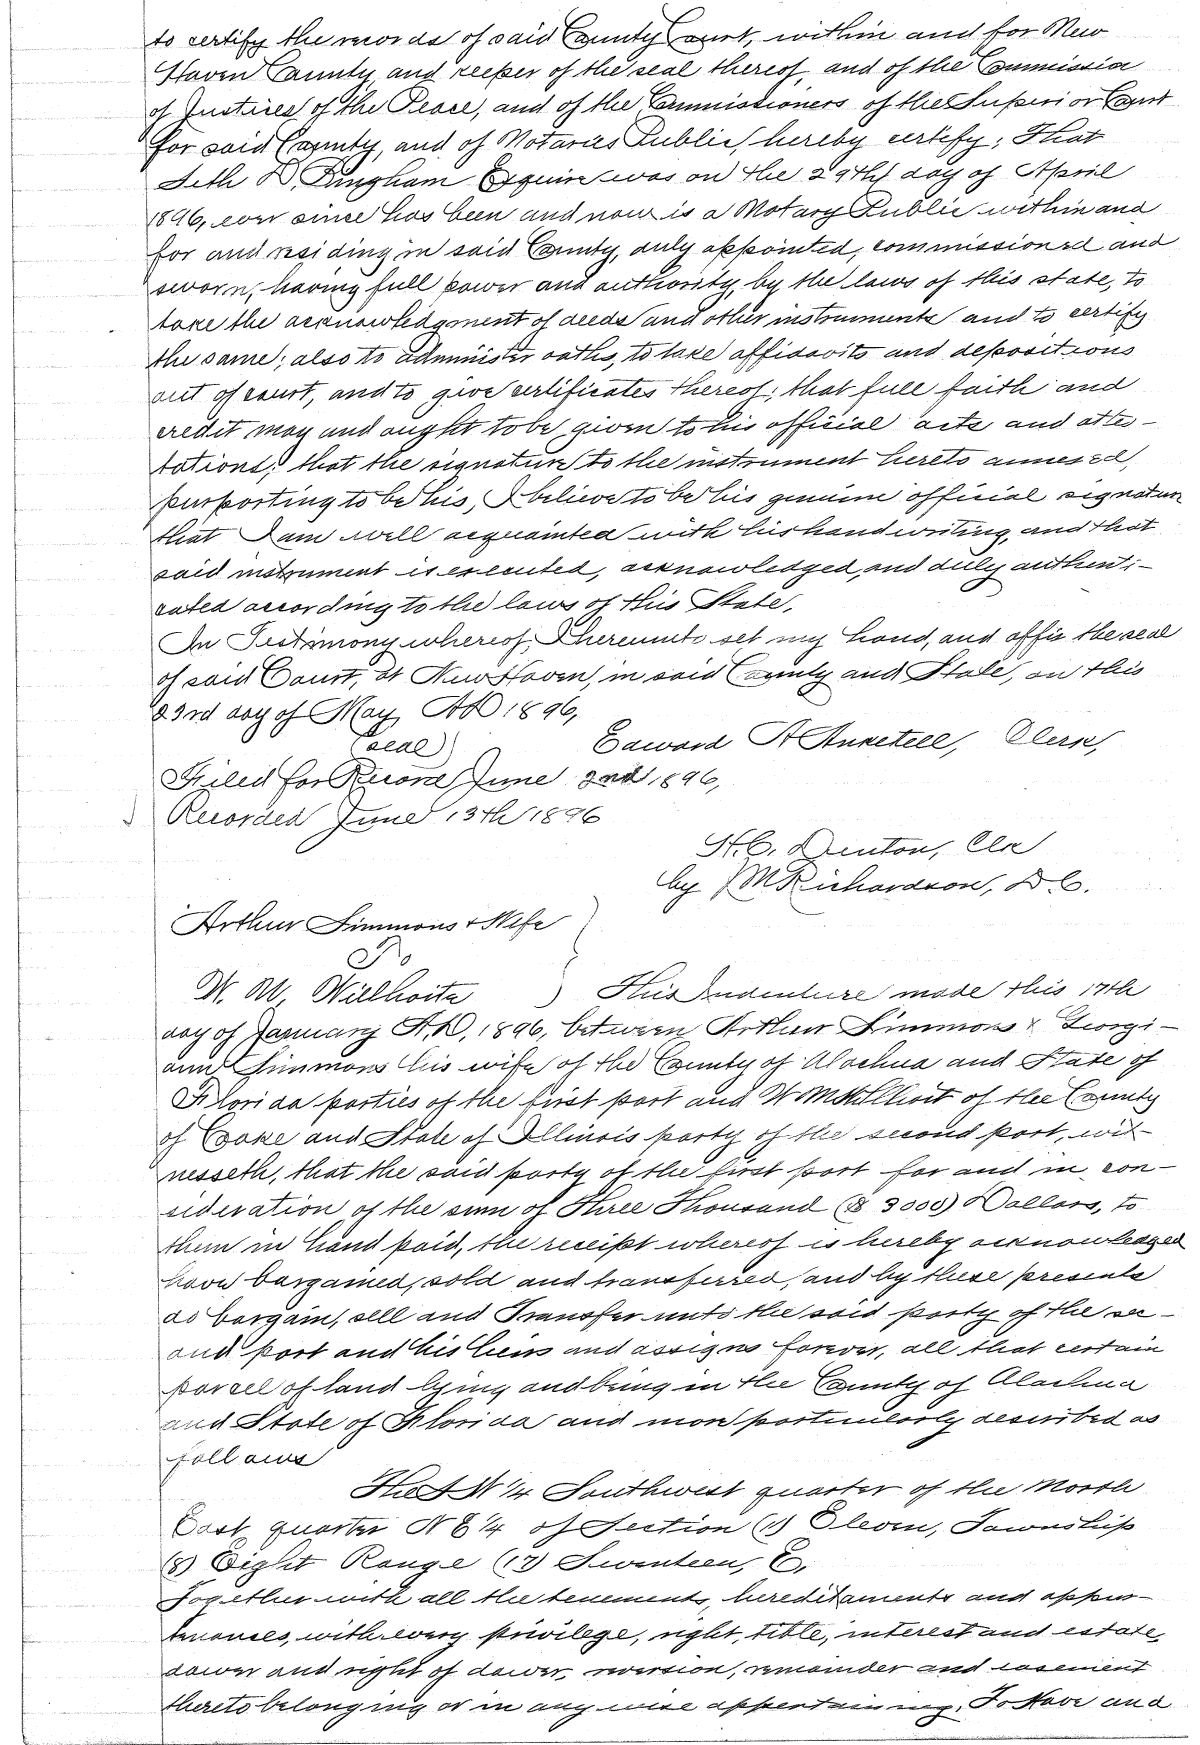 to certify the records of said County Court, within and for New
Haven County, and keeper of the seal thereof, and of the Commission
of Justices of the Peace, and of the Commissioners of the Superior Court
for said County, and of Notaries Public, hereby certify; That
Seth D. Bingham Esquire was on the 29th day of April
1896, ever since has been and now is a Notary Public within and
for and residing in said County, duly appointed, commissioned and
sworn, having full power and authority, by the laws of this state, to
take the acknowledgment of deeds and other instruments and to certify
the same; also to administer oaths, to take affidavits and depositions
out of court, and to give certificates thereof; that full faith and
credit may and ought to be given to his official acts and attes-
tations; that the signature to the instrument hereto annexed,
purporting to be his, I believe to be his genuine official signature
that I am well acquainted with his handwriting, and that
said instrument is executed, acknowledged, and duly authenti-
cated according to the laws of this State.
In Testimony whereof, I hereunto set my hand, and affix the seal
of said Court, at New Haven, in said County and State, on this
23rd day of May AD 1896,
(seal) Edward A Anketell, Clerk,
Filed for Record June 2nd 1896,
Recorded June 13th 1896
H.C. Denton, Clk
by J M Richardson, D.C.
Arthur Simmons & Wife
To
W. M. Willhoite ) This Indenture made this 17th
day of January A.D. 1896, between Arthur Simmons & Georgi-
ann Simmons his wife of the County of Alachua and State of
Florida parties of the first part and W M Willhoit of the County
of Cooke and State of Illinois party of the second part, wit-
nesseth, that the said party of the first part for and in con-
sideration of the sum of Three Thousand ($ 3000) Dollars, to
them in hand paid, the receipt whereof is hereby acknowledged
have bargained, sold and transferred, and by these presents
do bargain, sell and Transfer unto the said party of the sec-
ond part and his heirs and assigns forever, all that certain
parcel of land lying and being in the County of Alachua
and State of Florida and more particularly described as
follows
The SW 1/4 Southwest quarter of the North
East quarter N E 1/4 of Section (11) Eleven, Township
(8) Eight Range (17) Seventeen, E,
Together with all the tenements, hereditaments and appur-
tenances, with every privilege, right, title, interest and estate,
dower and right of dower, reversion, remainder and easement
thereto belonging or in any wise appertaining. To Have and